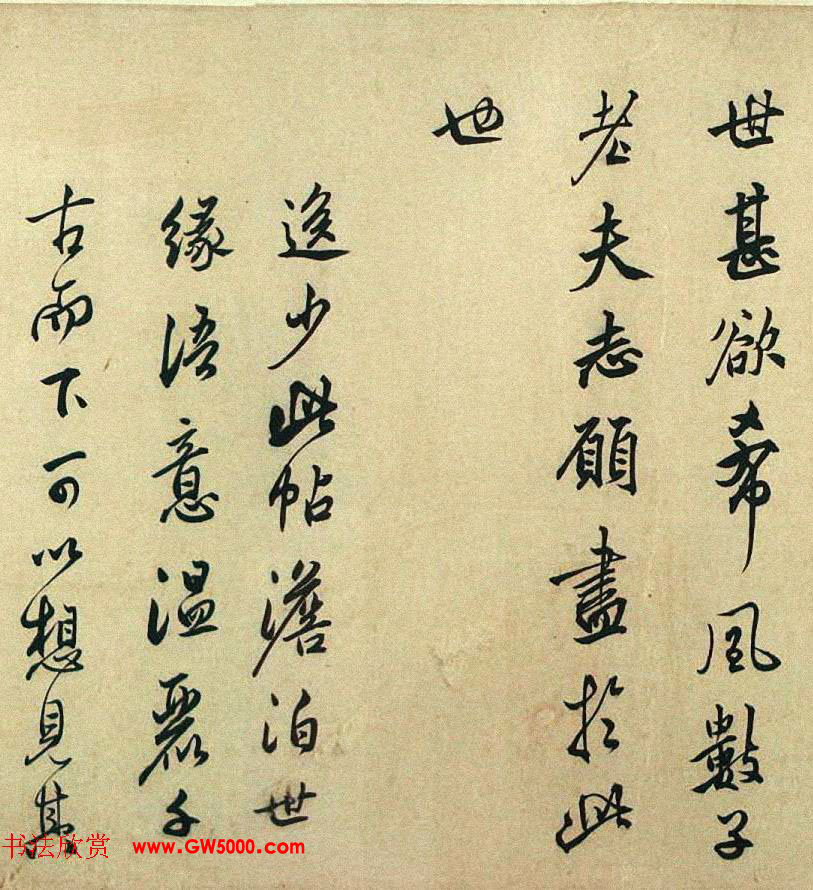 世甚欲希風數子
老夫志願盡於此
也
逸少此帖澹泊世
緣語意溫麗千
古而下可以想見其
书法欣赏 www.GW5000.com